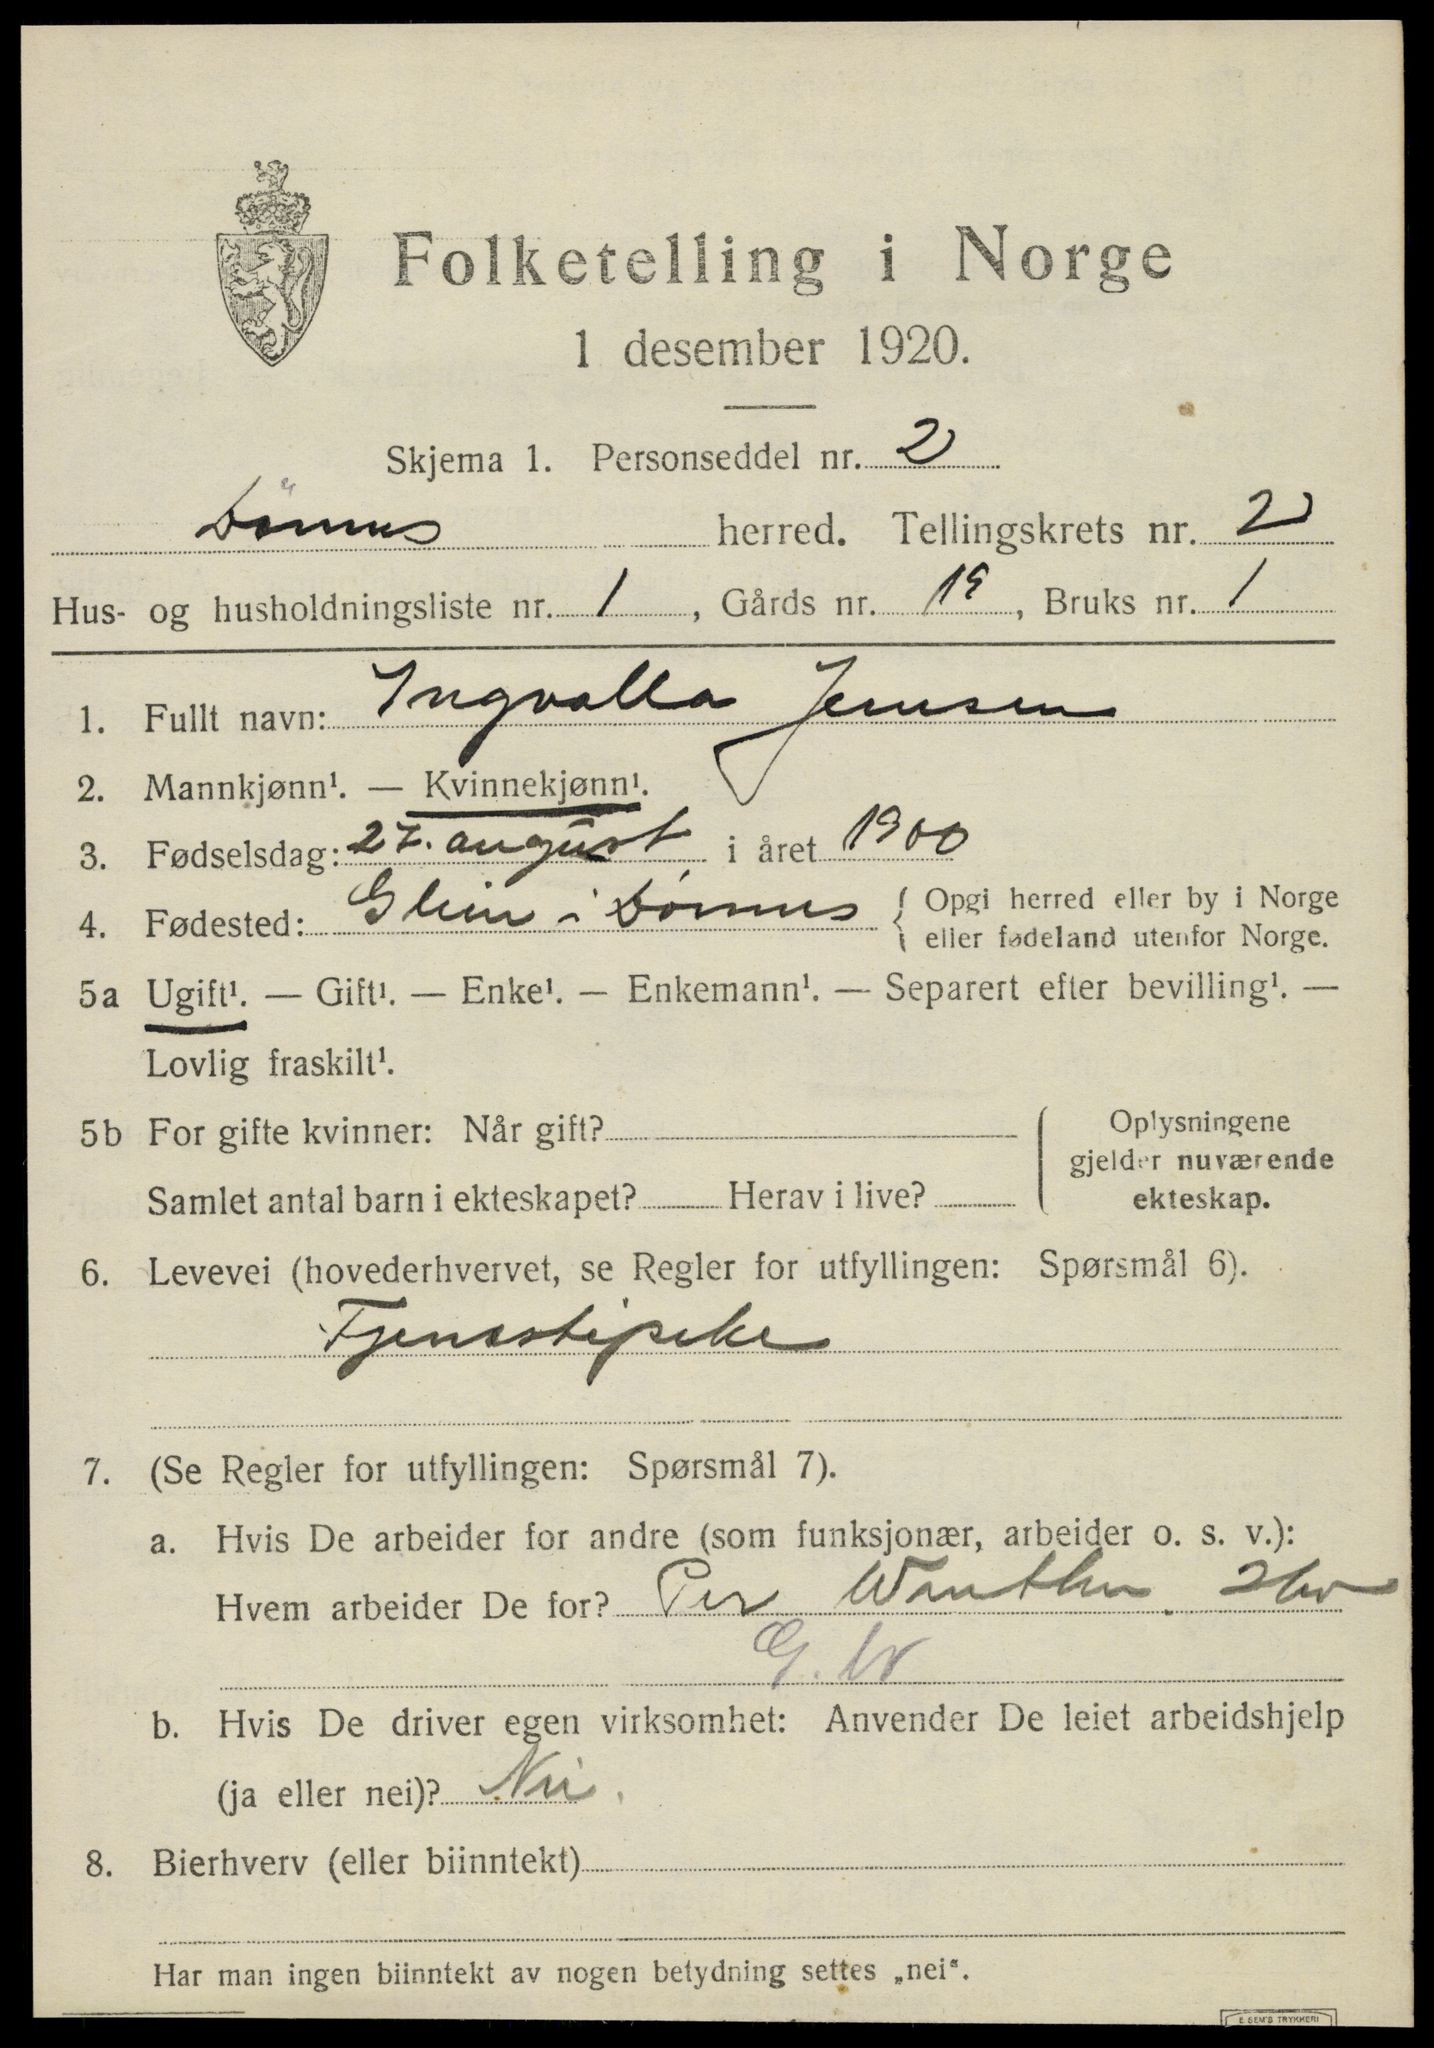 Folketelling i Norge
1 desember 1920.
Skjema 1. Personseddel nr. 2
Dönnes herred. Tellingskrets nr. 2
Hus- og husholdningsliste nr. 1, Gårds nr. 19, Bruks nr. 1
1. Fullt navn: Ingvalla Jenssen
2. Mannkjønn¹. — Kvinnekjønn¹.
3. Fødselsdag: 27. august i året 1900
4. Fødested: Glein i Dönnes { Opgi herred eller by i Norge
eller fødeland utenfor Norge.
5a Ugift¹. — Gift¹. — Enke¹. — Enkemann¹. — Separert efter bevilling¹. —
Lovlig fraskilt¹.
5b For gifte kvinner: Når gift?
Samlet antal barn i ekteskapet? Herav i live?
Oplysningene
gjelder nuværende
ekteskap.
6. Levevei (hovederhvervet, se Regler for utfyllingen: Spørsmål 6).
Tjenestepike
7. (Se Regler for utfyllingen: Spørsmål 7).
a. Hvis De arbeider for andre (som funksjonær, arbeider o. s. v.):
Hvem arbeider De for? Per
G. W
b. Hvis De driver egen virksomhet: Anvender De leiet arbeidshjelp
(ja eller nei)? Nei.
8. Bierhverv (eller biinntekt)
Har man ingen biinntekt av nogen betydning settes „nei“.
E SEM'S TRYKKERI